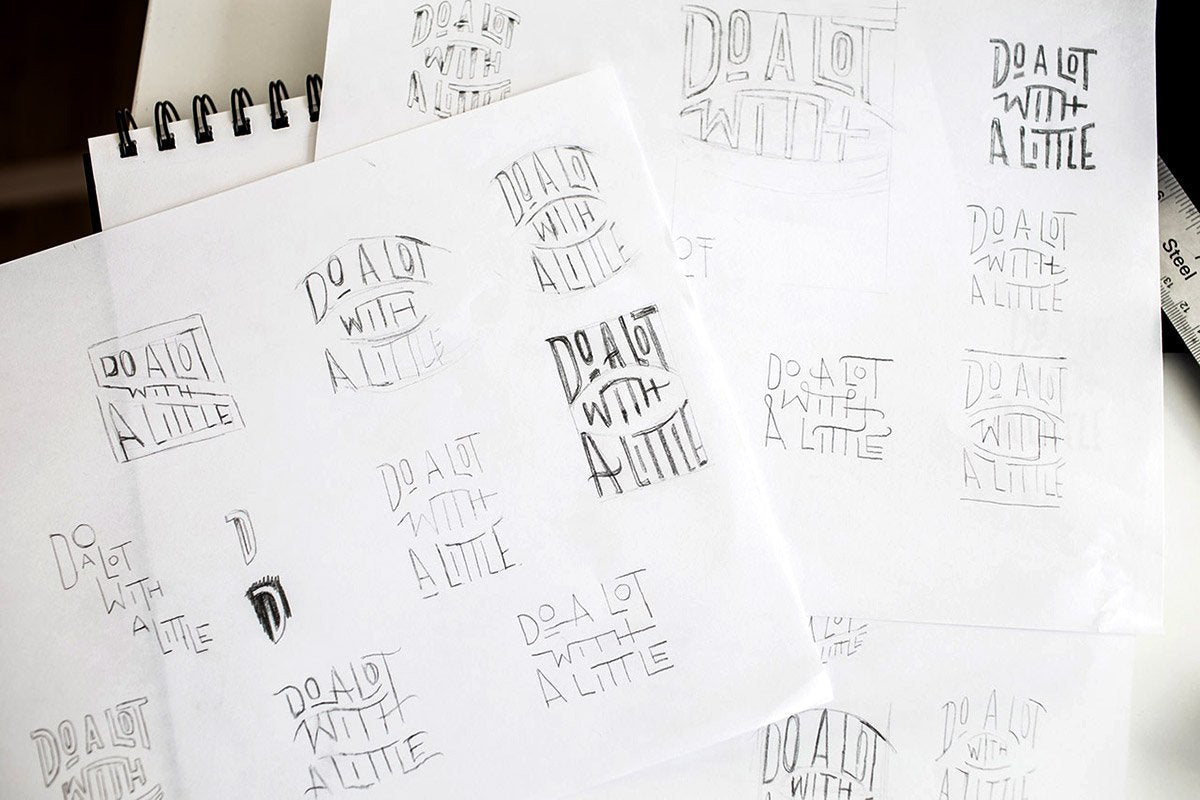 DO A LOT
WITH
A LITT
DO A LOT
WITH
DO A LOT
WITH
A LITTLE
DO A LOT
WITH
A LITTLE
OT
DO A LOT
WITH
A LITTLE
DO A LOT
WITH
A LITTLE
Steel
13
12
DO A LOT
WITH
A LITTLE
DO A LOT
WITH
A LITTLE
DO A LOT
WITH
A LITTLE
DO A LOT
WITH
A LITTLE
DO A LOT
WITH
A LITTLE
DO
A LOT
WITH
A LITTLE
D
D
DO A LOT
WITH
A LITTLE
DO A LOT
WITH
A LITTLE
DO A LOT
WITH
DO A LOT
WITH
DO A LOT
WITH
A LITTLE